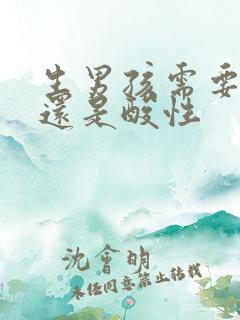 生男孩需要
還是酸性
沈會明
未经同意禁止转载